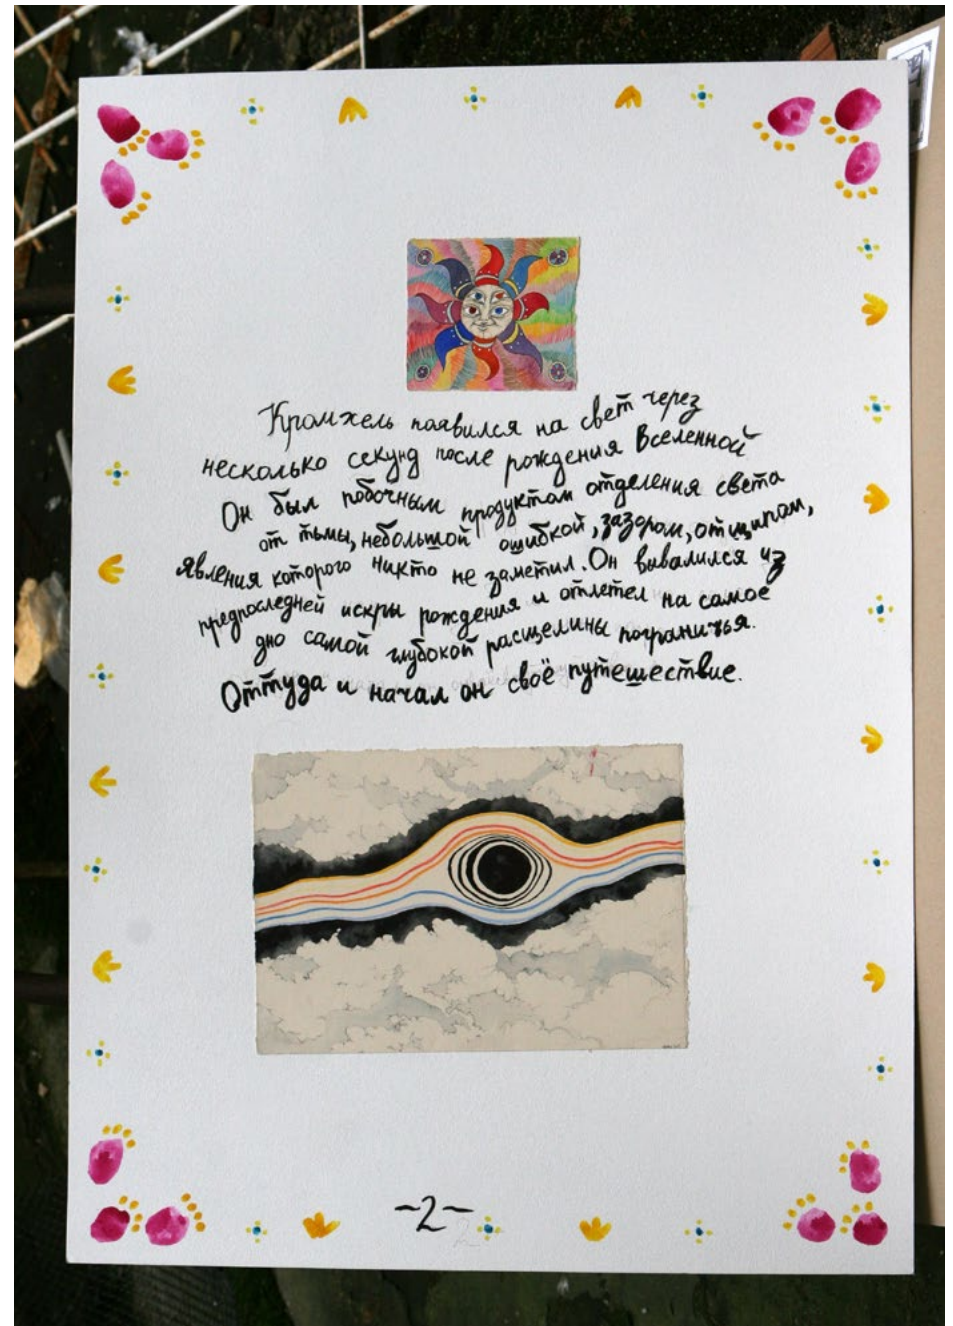 Кромхель появился на свет через
несколько секунд после рождения Вселенной
Он был побочным продуктом отделения света
от тьмы, небольшой ошибкой, зазором, отщипом,
явления которого никто не заметил. Он вывалился из
предпоследней искры рождения и отлетел на самое
дно самой глубокой расщелины пограничья.
Оттуда и начал он своё путешествие.
-2-